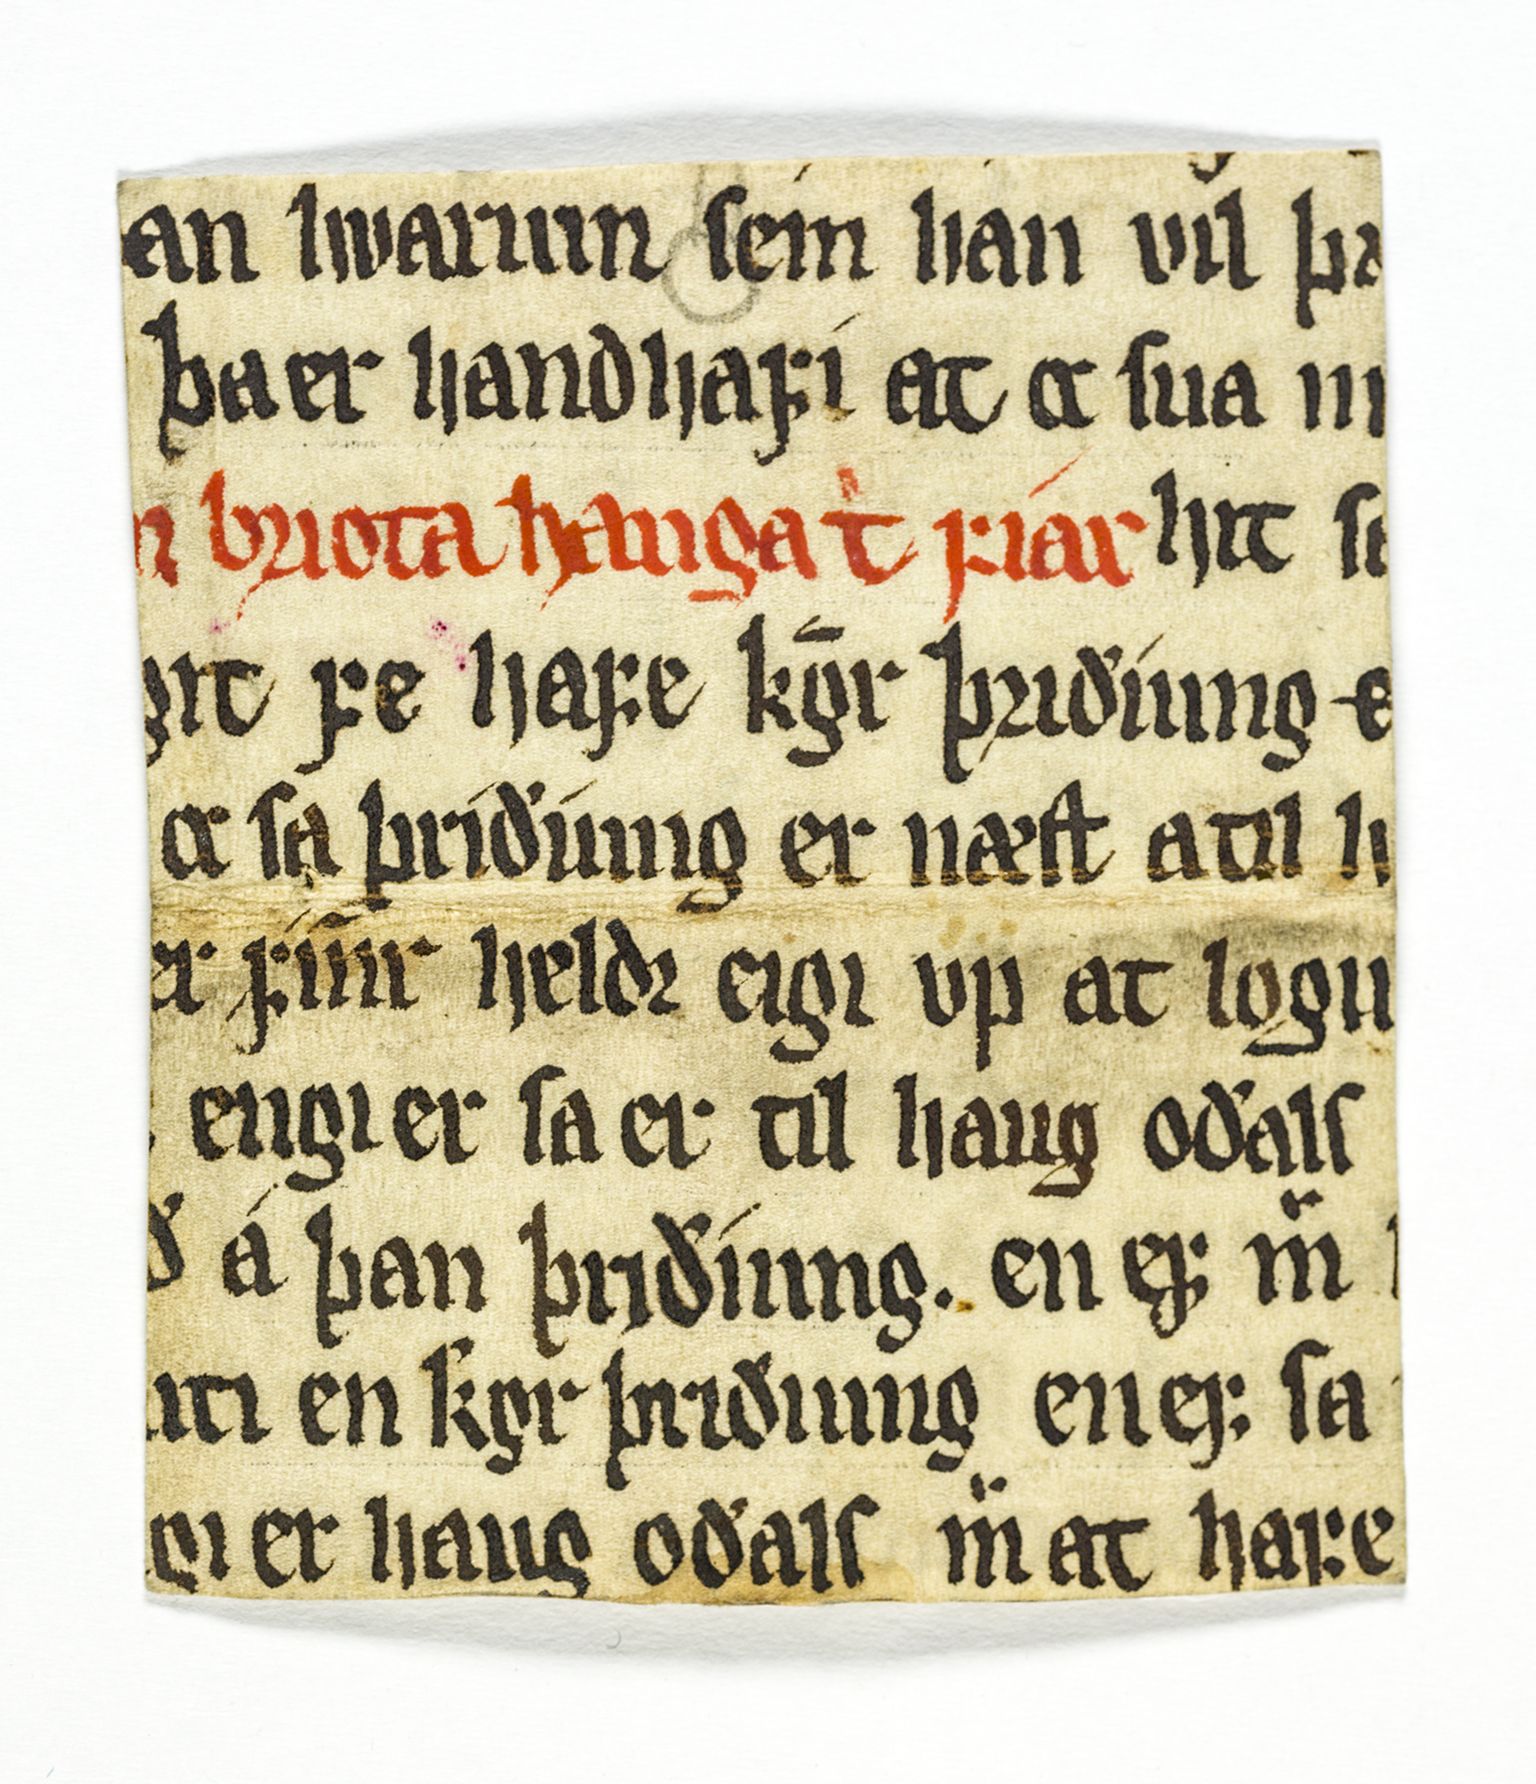 an hwarum sem han vil þa
þa er handhafi at æ sua m
n briota hauga t fiar hit se
git fe hafe kgr þriðiung e
æ sa þriðiung er næst atil h
er finr heldr eigi up at logu
engi er sa er til haug oðals
ð á þan þriðiung. en ef m
iti en kgr þriðiung en ef sa
gi er haug oðals m at hafe